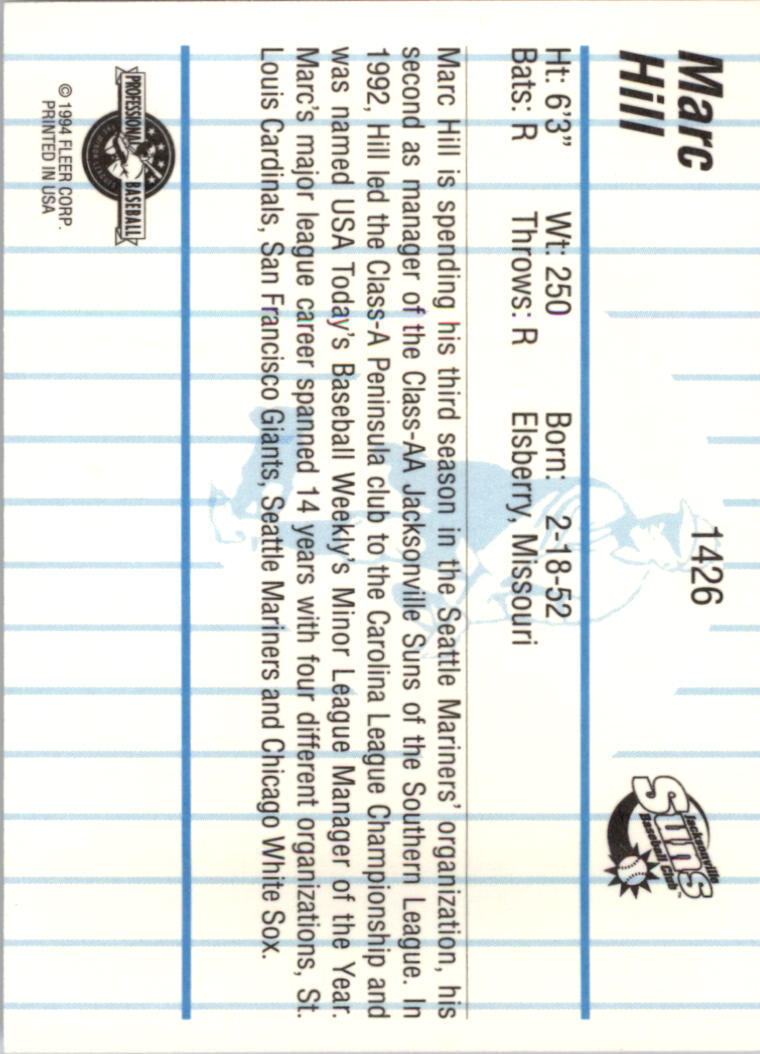 Marc
Hill
1426
Jacksonville
Suns
Baseball Club
Ht: 6'3" Wt: 250 Born: 2-18-52
Bats: R Throws: R Elsberry, Missouri
Marc Hill is spending his third season in the Seattle Mariners' organization, his
second as manager of the Class-AA Jacksonville Suns of the Southern League. In
1992, Hill led the Class-A Peninsula club to the Carolina League Championship and
was named USA Today's Baseball Weekly's Minor League Manager of the Year.
Marc's major league career spanned 14 years with four different organizations, St.
Louis Cardinals, San Francisco Giants, Seattle Mariners and Chicago White Sox.
PROFESSIONAL BASEBALL
© 1994 FLEER CORP.
PRINTED IN USA